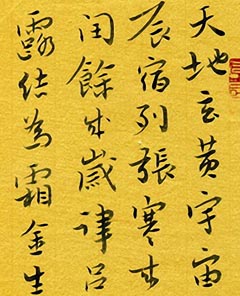 天地玄黃宇宙
辰宿列張寒来
閏餘成歲律呂
露結為霜金生